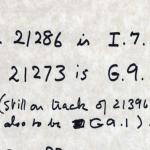 21286 is I.7.
21273 is G.9.
(still on track of 21396
also to be G9.1)